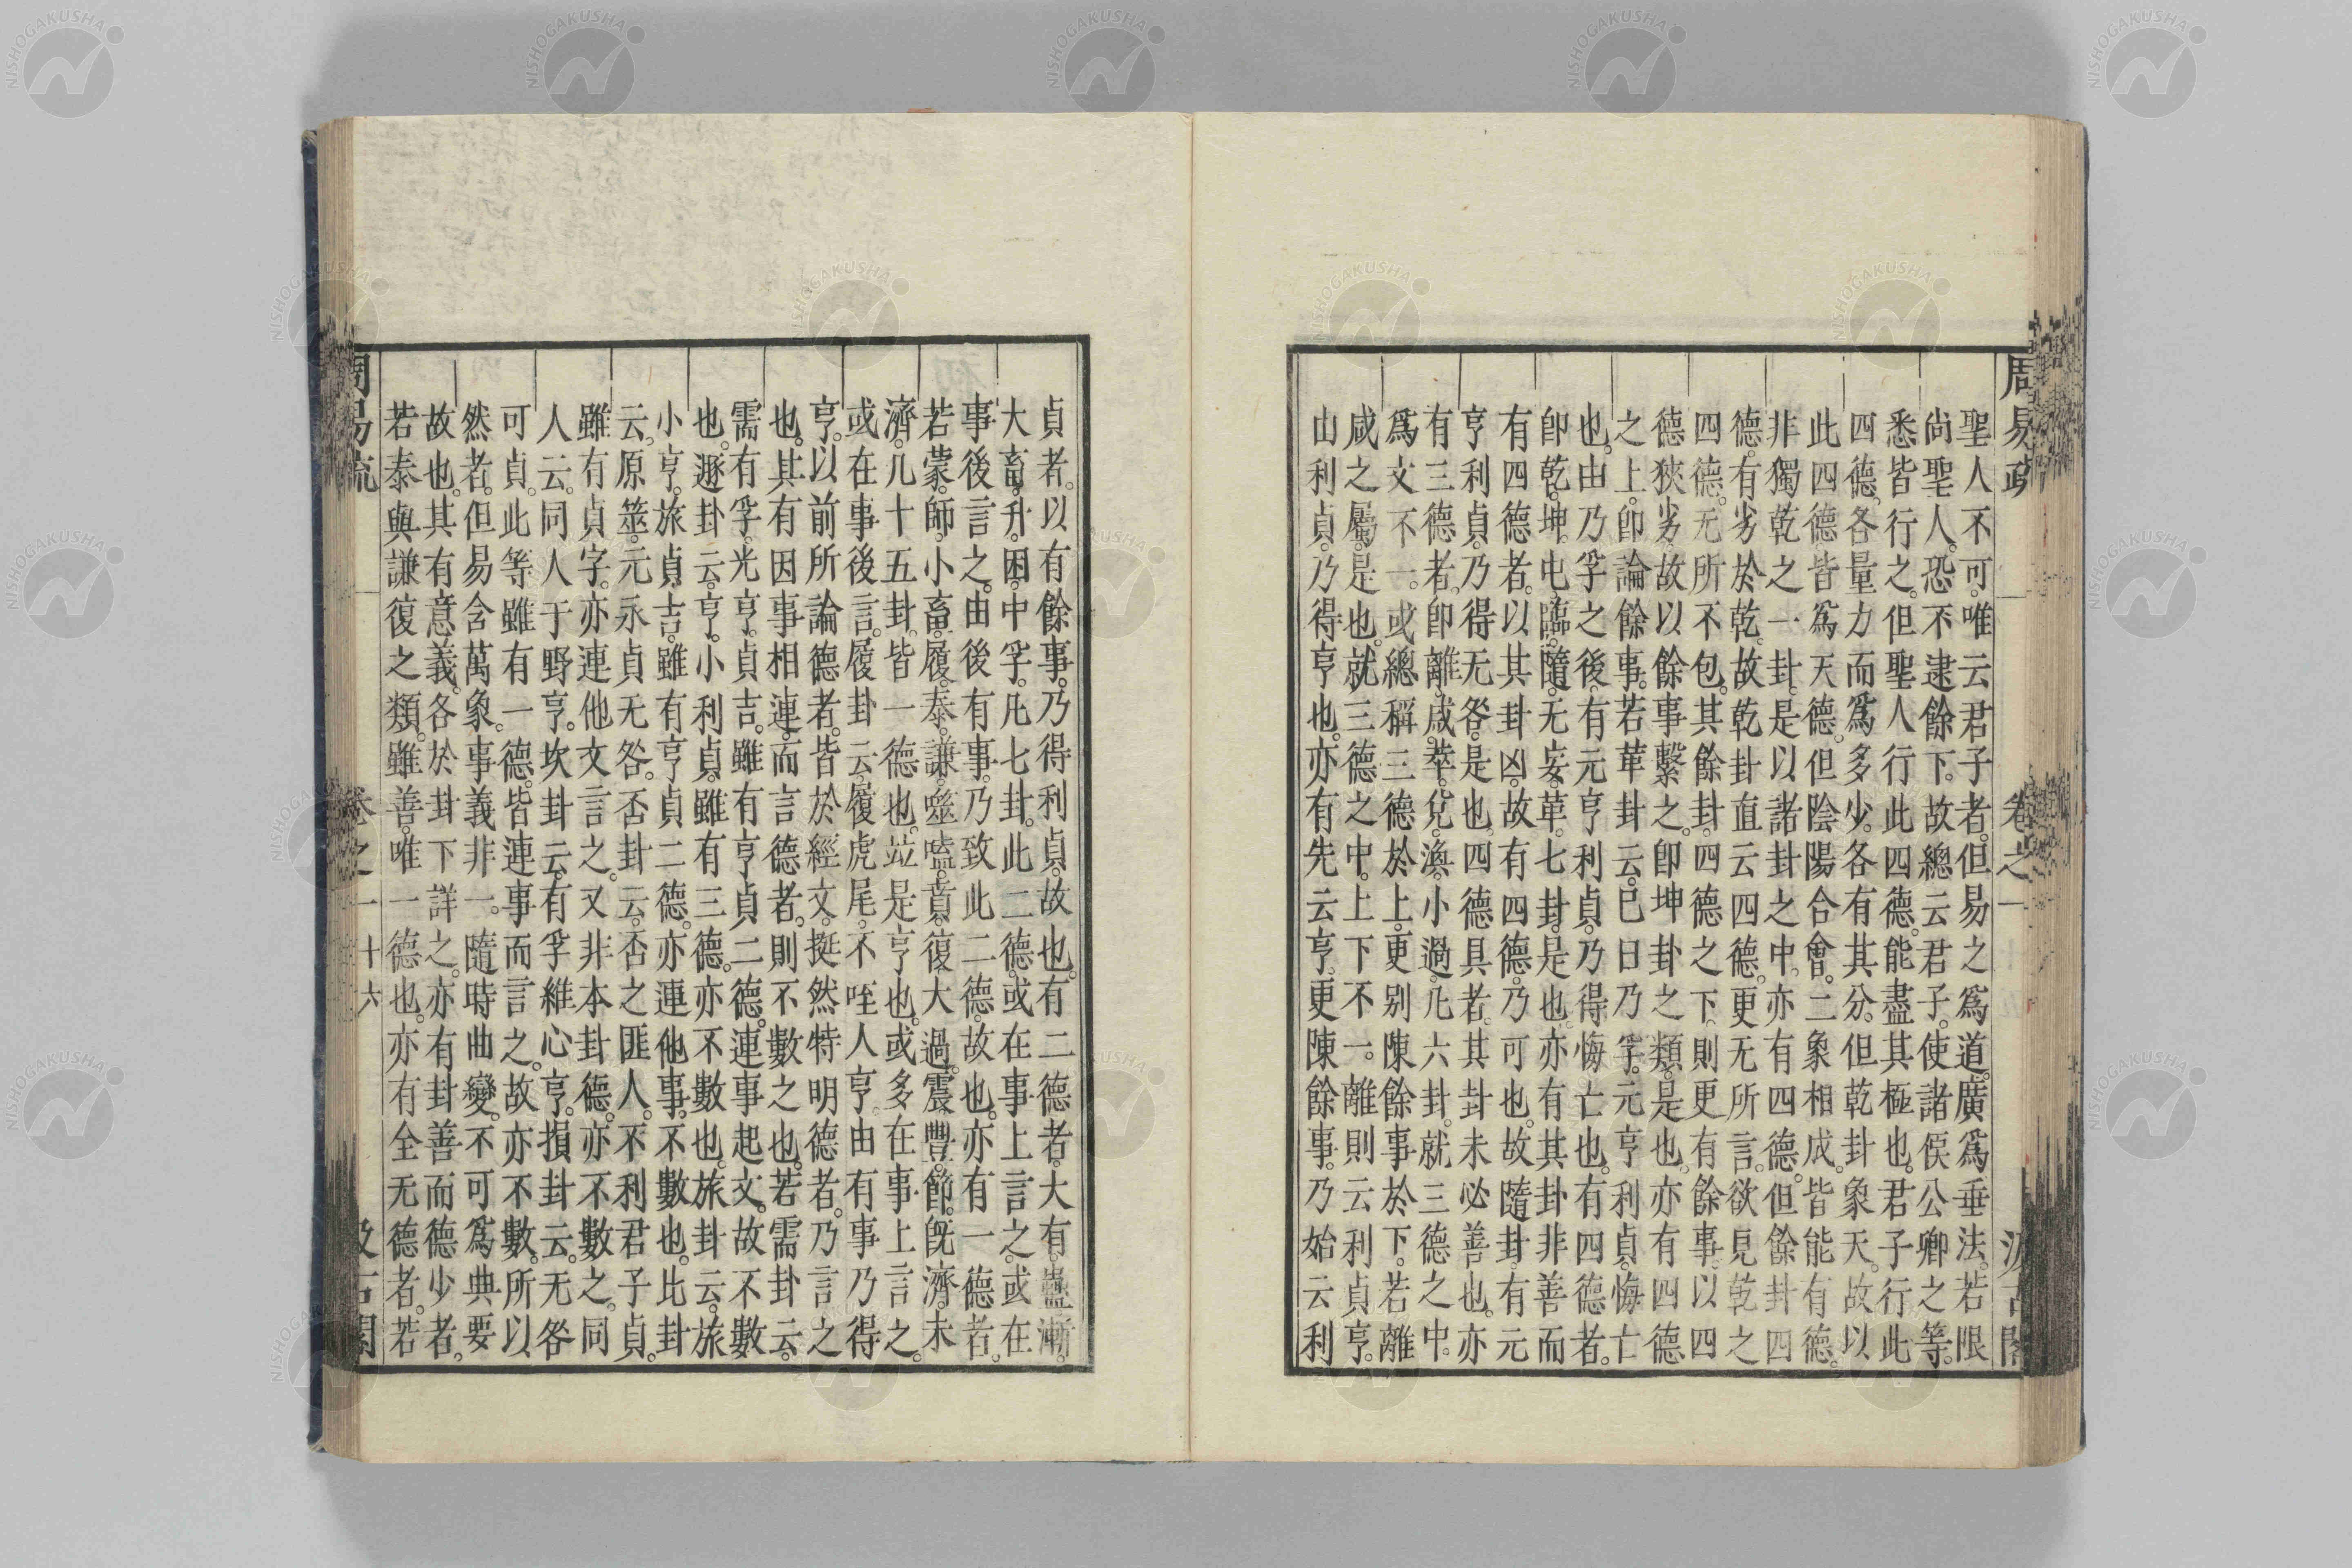 周易疏 卷之一 汲古閣
聖人不可。唯云君子者。但易之爲道。廣爲垂法。若限
尚聖人。恐不逮餘下。故總云君子。使諸侯公卿之等。
悉皆行之。但聖人行此四德。能盡其極也。君子行此
四德。各量力而爲多少。各有其分。但乾卦象天。故以
此四德皆爲天德。但陰陽合會。二象相成。皆能有德。
非獨乾之一卦。是以諸卦之中。亦有四德。但餘卦四
德。有劣於乾。故乾卦直云四德。更无所言。欲見乾之
四德。无所不包。其餘卦。四德之下。則更有餘事。以四
德狹劣。故以餘事繫之。卽坤卦之類。是也。亦有四德
之上。卽論餘事。若革卦云。已日乃孚。元亨利貞。悔亡
也。由乃孚之後。有元亨利貞。乃得悔亡也。有四德者。
卽乾。坤。屯。臨。隨。无妄。革。七卦。是也。亦有其卦非善而
有四德者。以其卦凶。故有四德。乃可也。故隨卦。有元
亨利貞。乃得无咎。是也。四德具者。其卦未必善也。亦
有三德者。卽離。咸。萃。兌。渙。小過。凡六卦。就三德之中。
爲文不一。或總稱三德於上。更别陳餘事於下。若離
咸之屬。是也。就三德之中。上下不一。離則云利貞亨。
由利貞。乃得亨也。亦有先云亨。更陳餘事。乃始云利
貞者。以有餘事。乃得利貞。故也。有二德者。大有。蠱。漸。
大畜。升。困。中孚。凡七卦。此二德。或在事上言之。或在
事後言之。由後有事。乃致此二德。故也。亦有一德者。
若蒙。師。小畜。履。泰。謙。噬嗑。賁。復。大過。震。豐。節。旣濟。未
濟。凡十五卦。皆一德也。竝是亨也。或多在事上言之。
或在事後言。履卦云。履虎尾。不咥人亨。由有事乃得
亨。以前所論德者。皆於經文。挺然特明德者。乃言之
也。其有因事相連。而言德者。則不數之也。若需卦云。
需有孚。光亨。貞吉。雖有亨貞二德。連事起文。故不數
也。遯卦云。亨。小利貞。雖有三德。亦不數也。旅卦云。旅
小亨。旅貞吉。雖有亨貞二德。亦連他事。不數也。比卦
云。原筮。元永貞无咎。否卦云。否之匪人。不利君子貞。
雖有貞字。亦連他文言之。又非本卦德。亦不數之。同
人云。同人于野亨。坎卦云。有孚維心亨。損卦云。无咎
可貞。此等雖有一德。皆連事而言之。故亦不數。所以
然者。但易含萬象。事義非一。隨時曲變。不可爲典要
故也。其有意義。各於卦下詳之。亦有卦善而德少者。
若泰與謙復之類。雖善。唯一德也。亦有全无德者。若
周易疏 卷之一 十六 汲古閣